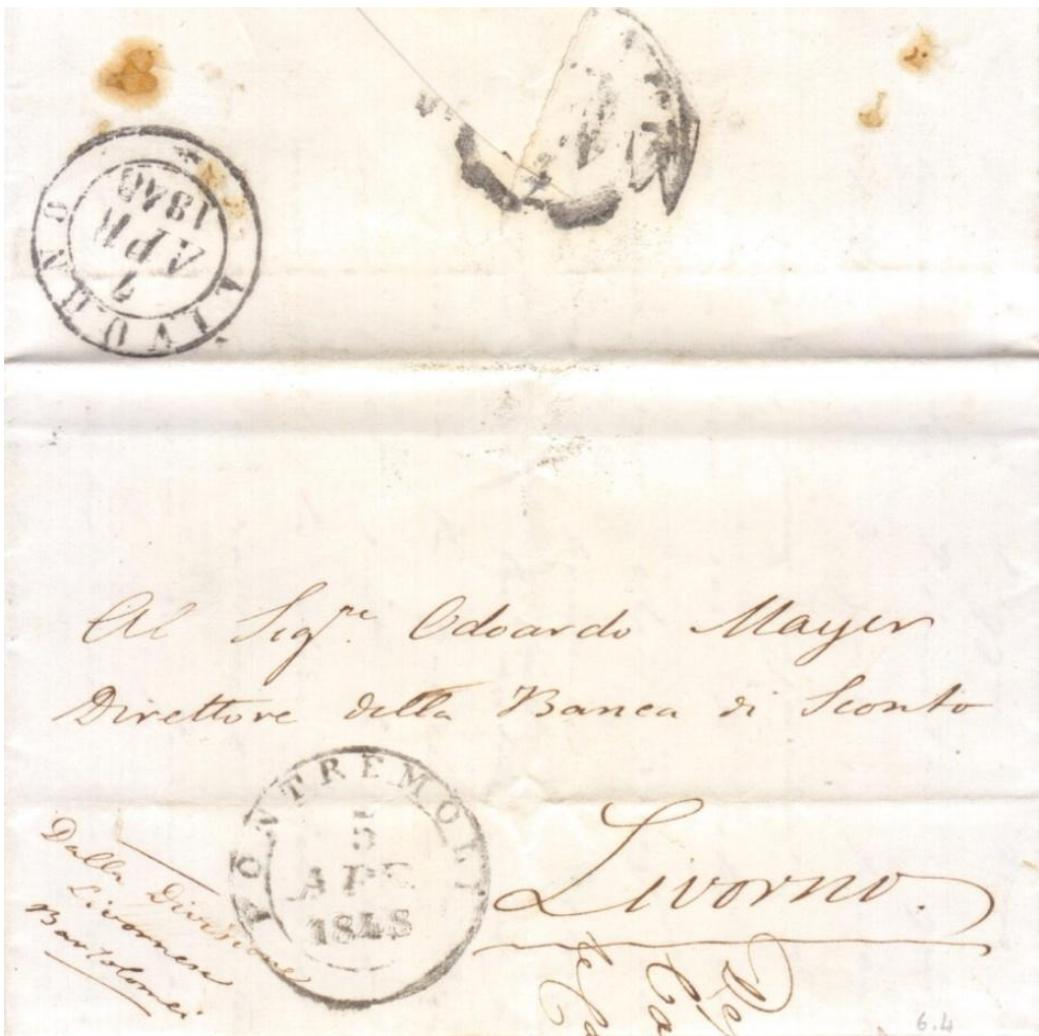 LIVORNO
7
APR
1848
Al Sig.re Odoardo Mayer
Direttore della Banca di Sconto
Livorno.
PONTREMOLI
5
APR
1848
Dalla Divisione
Livornese
Bartolomei
6.4